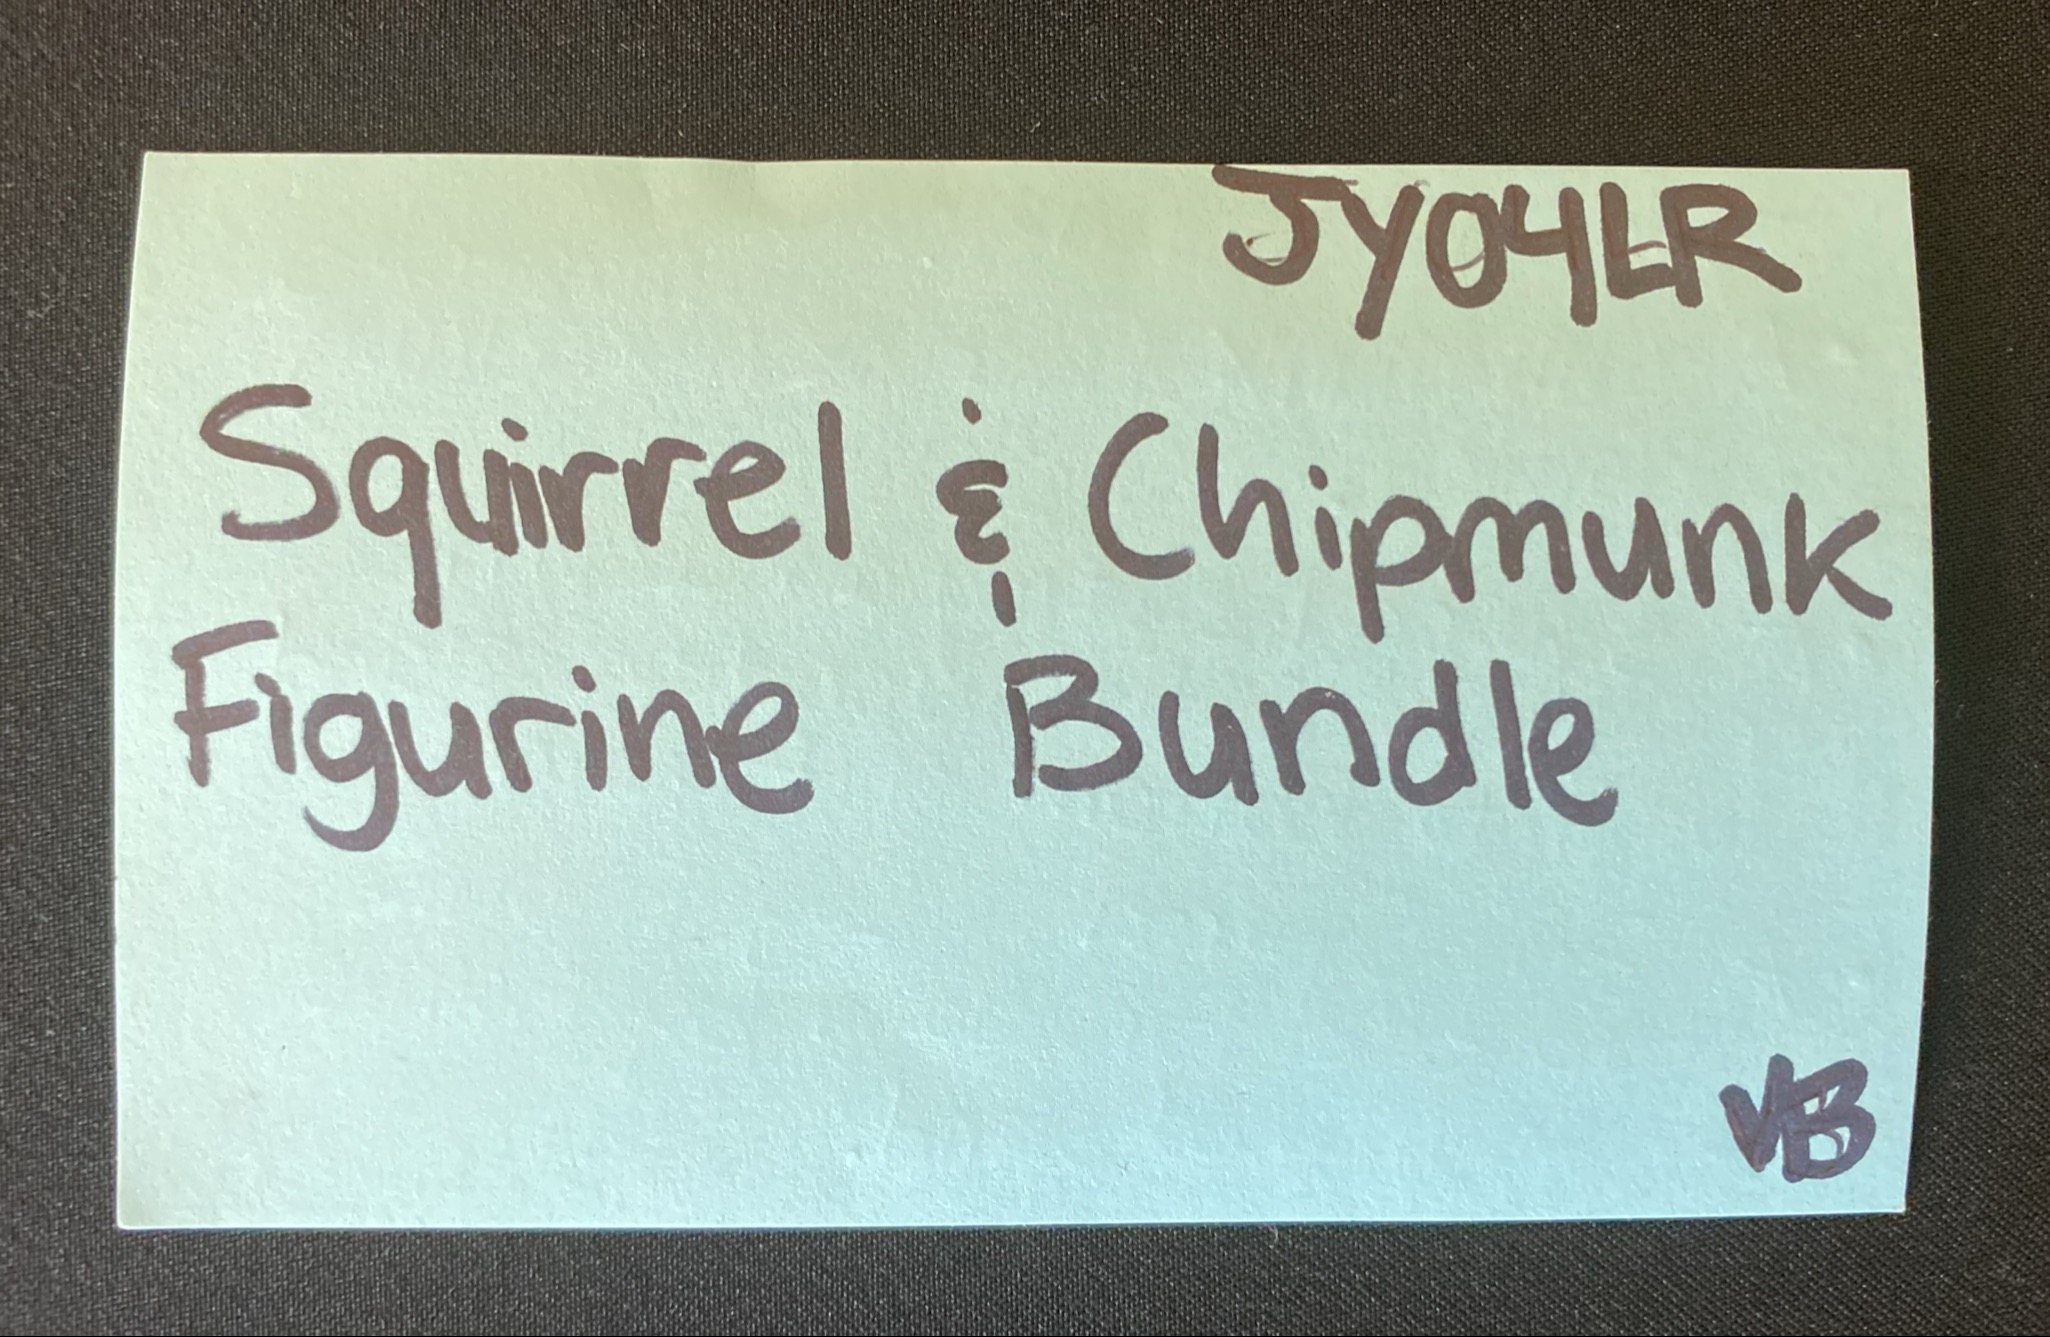 JY04LR
Squirrel & Chipmunk
Figurine Bundle
VB